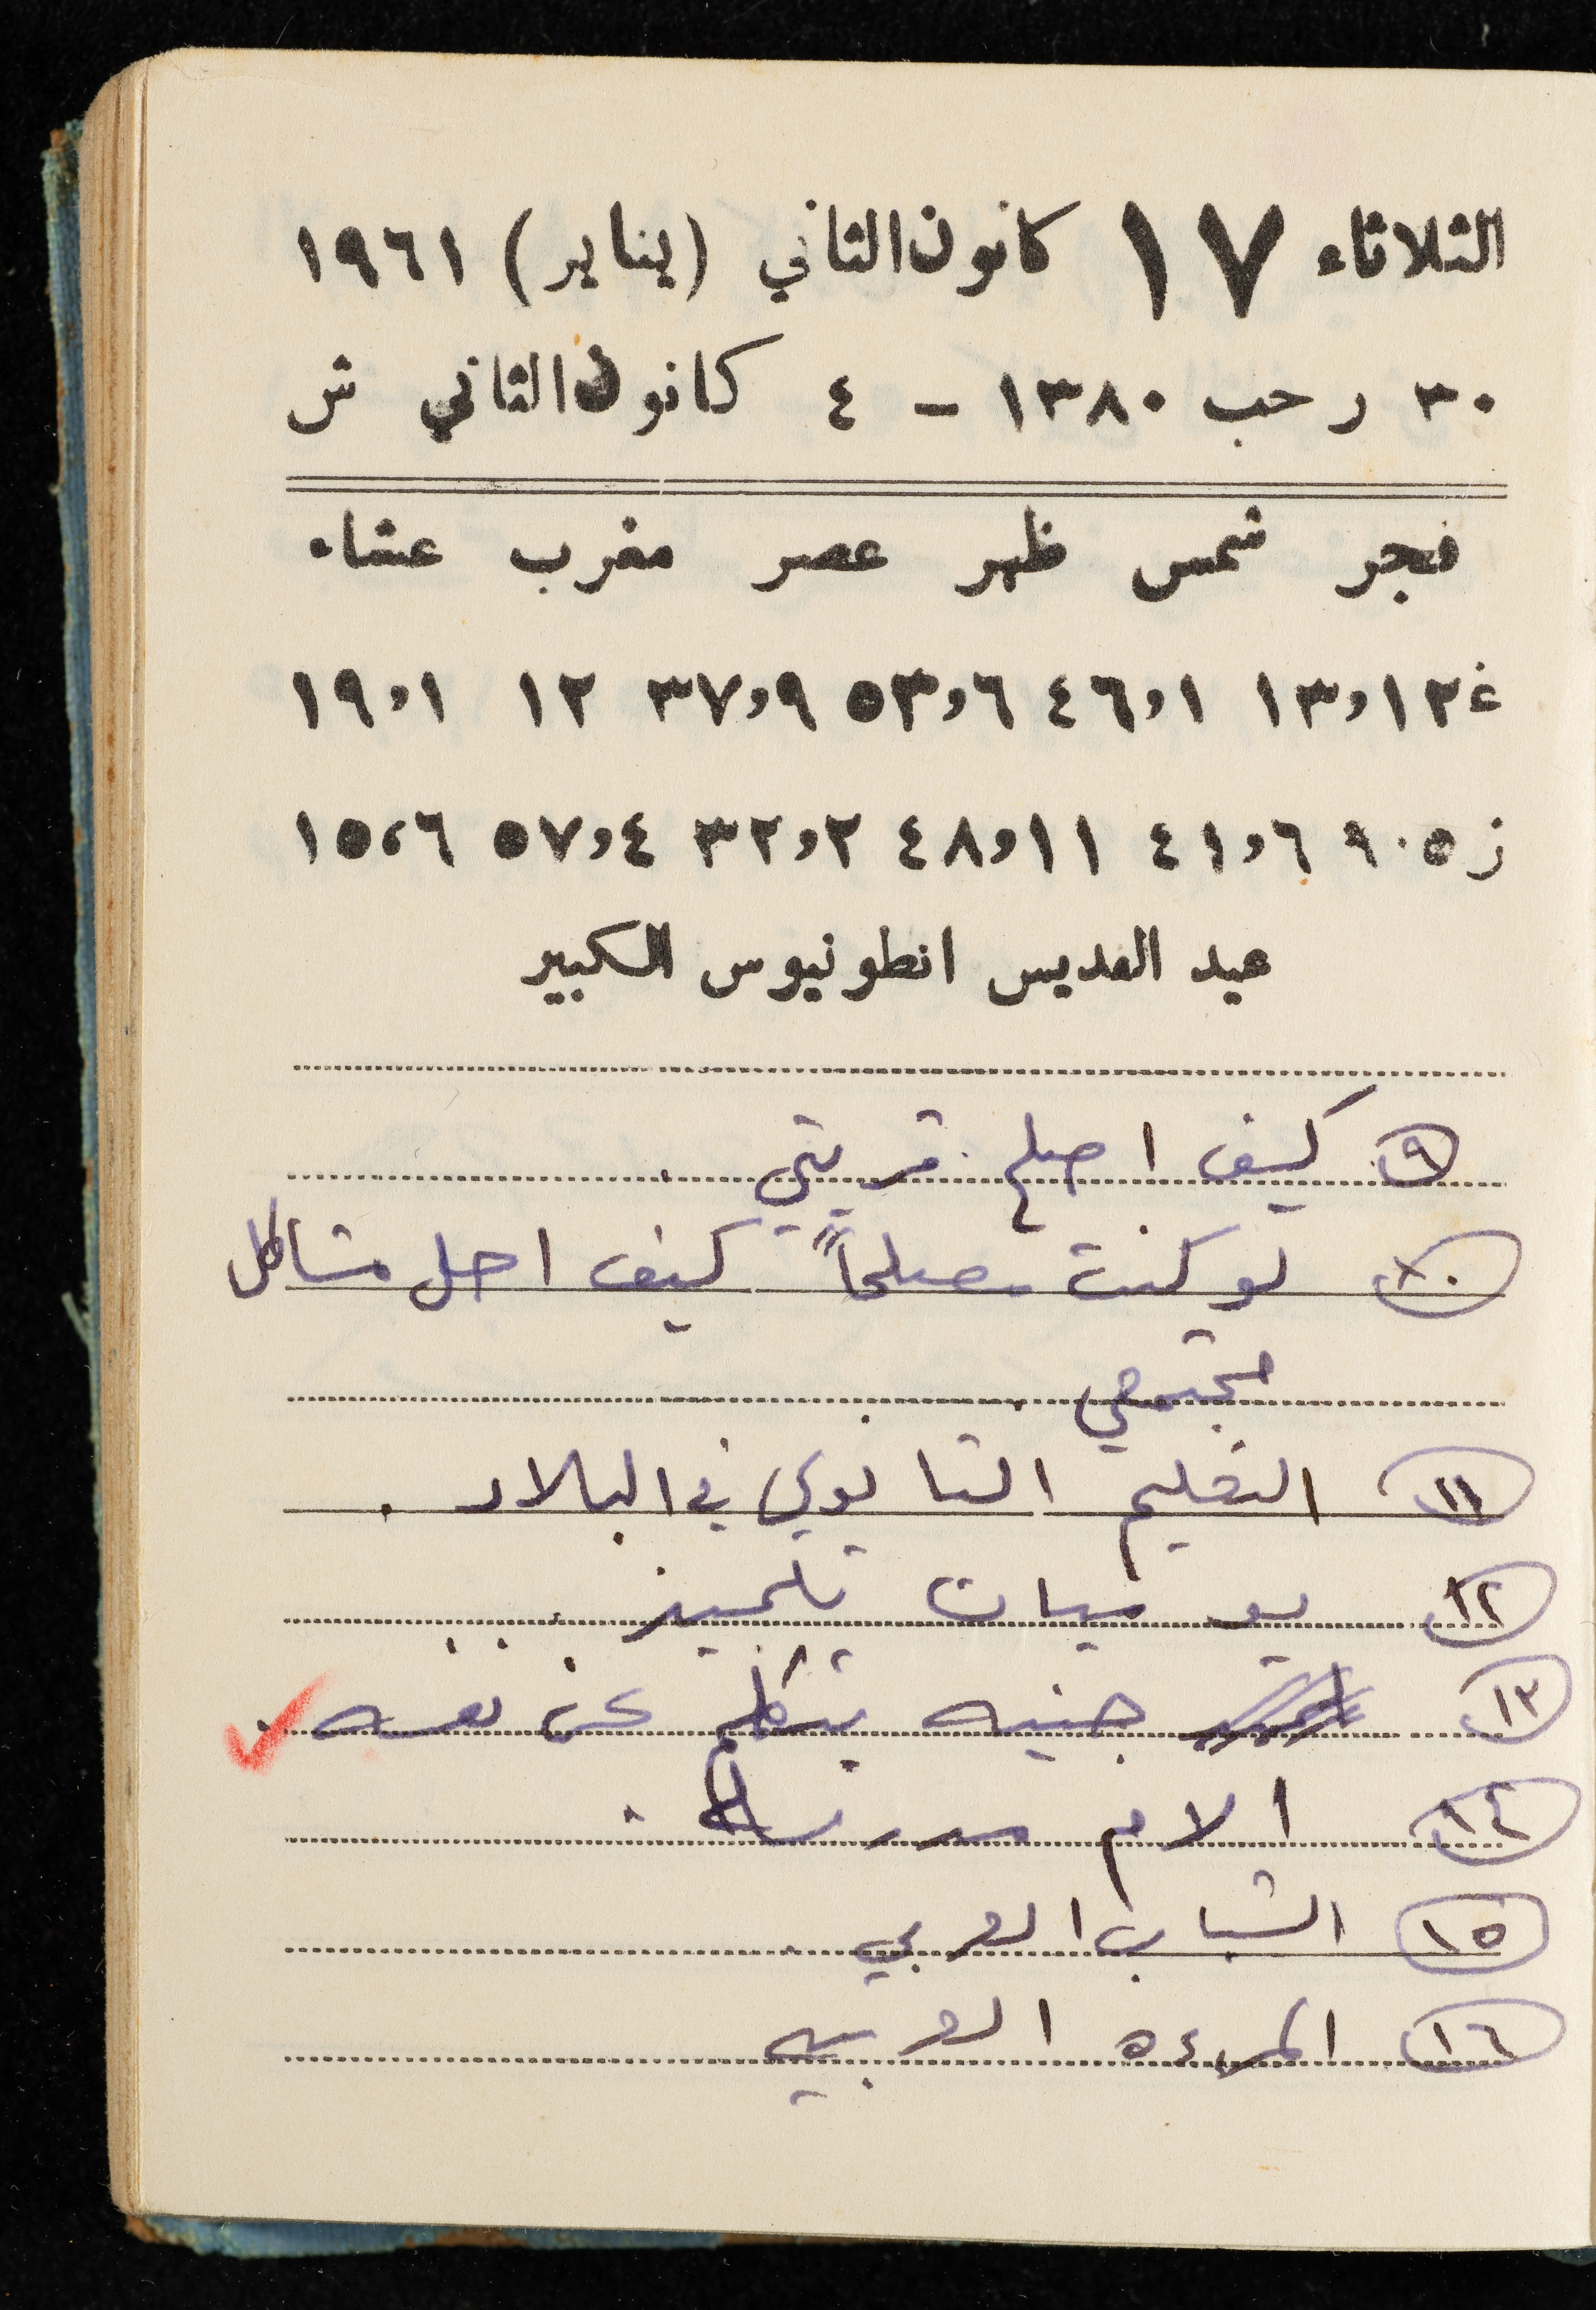 الثلاثاء ١٧ كانون الثاني (يناير) ١٩٦١
٣٠ رجب ١٣٨٠ – ٤ كانون الثاني ش
فجر شمس ظهر عصر مغرب عشاء
غ ١٣,١٢ ٤٦,١ ٥٣,٦ ٣٧,٩ ١٢ ١٩,١
ز ٩٠٥ ٤١,٦ ٤٨,١١ ٣٢,٢ ٥٧,٤ ١٥,٦
عيد القديس انطونيوس الكبير
٩ كيف اصلح قريتي
١٠ لو كنت مصلحاً كيف احل مشاكل
مجتمعي
١١ التعليم الثانوي في البلاد .
١٢ يوميات تلميذ . . .
١٣ جنيه يتكلم عن نفسه .
١٤ الام مدرسة .
١٥ الشباب العربي
١٦ المرءه العربيه